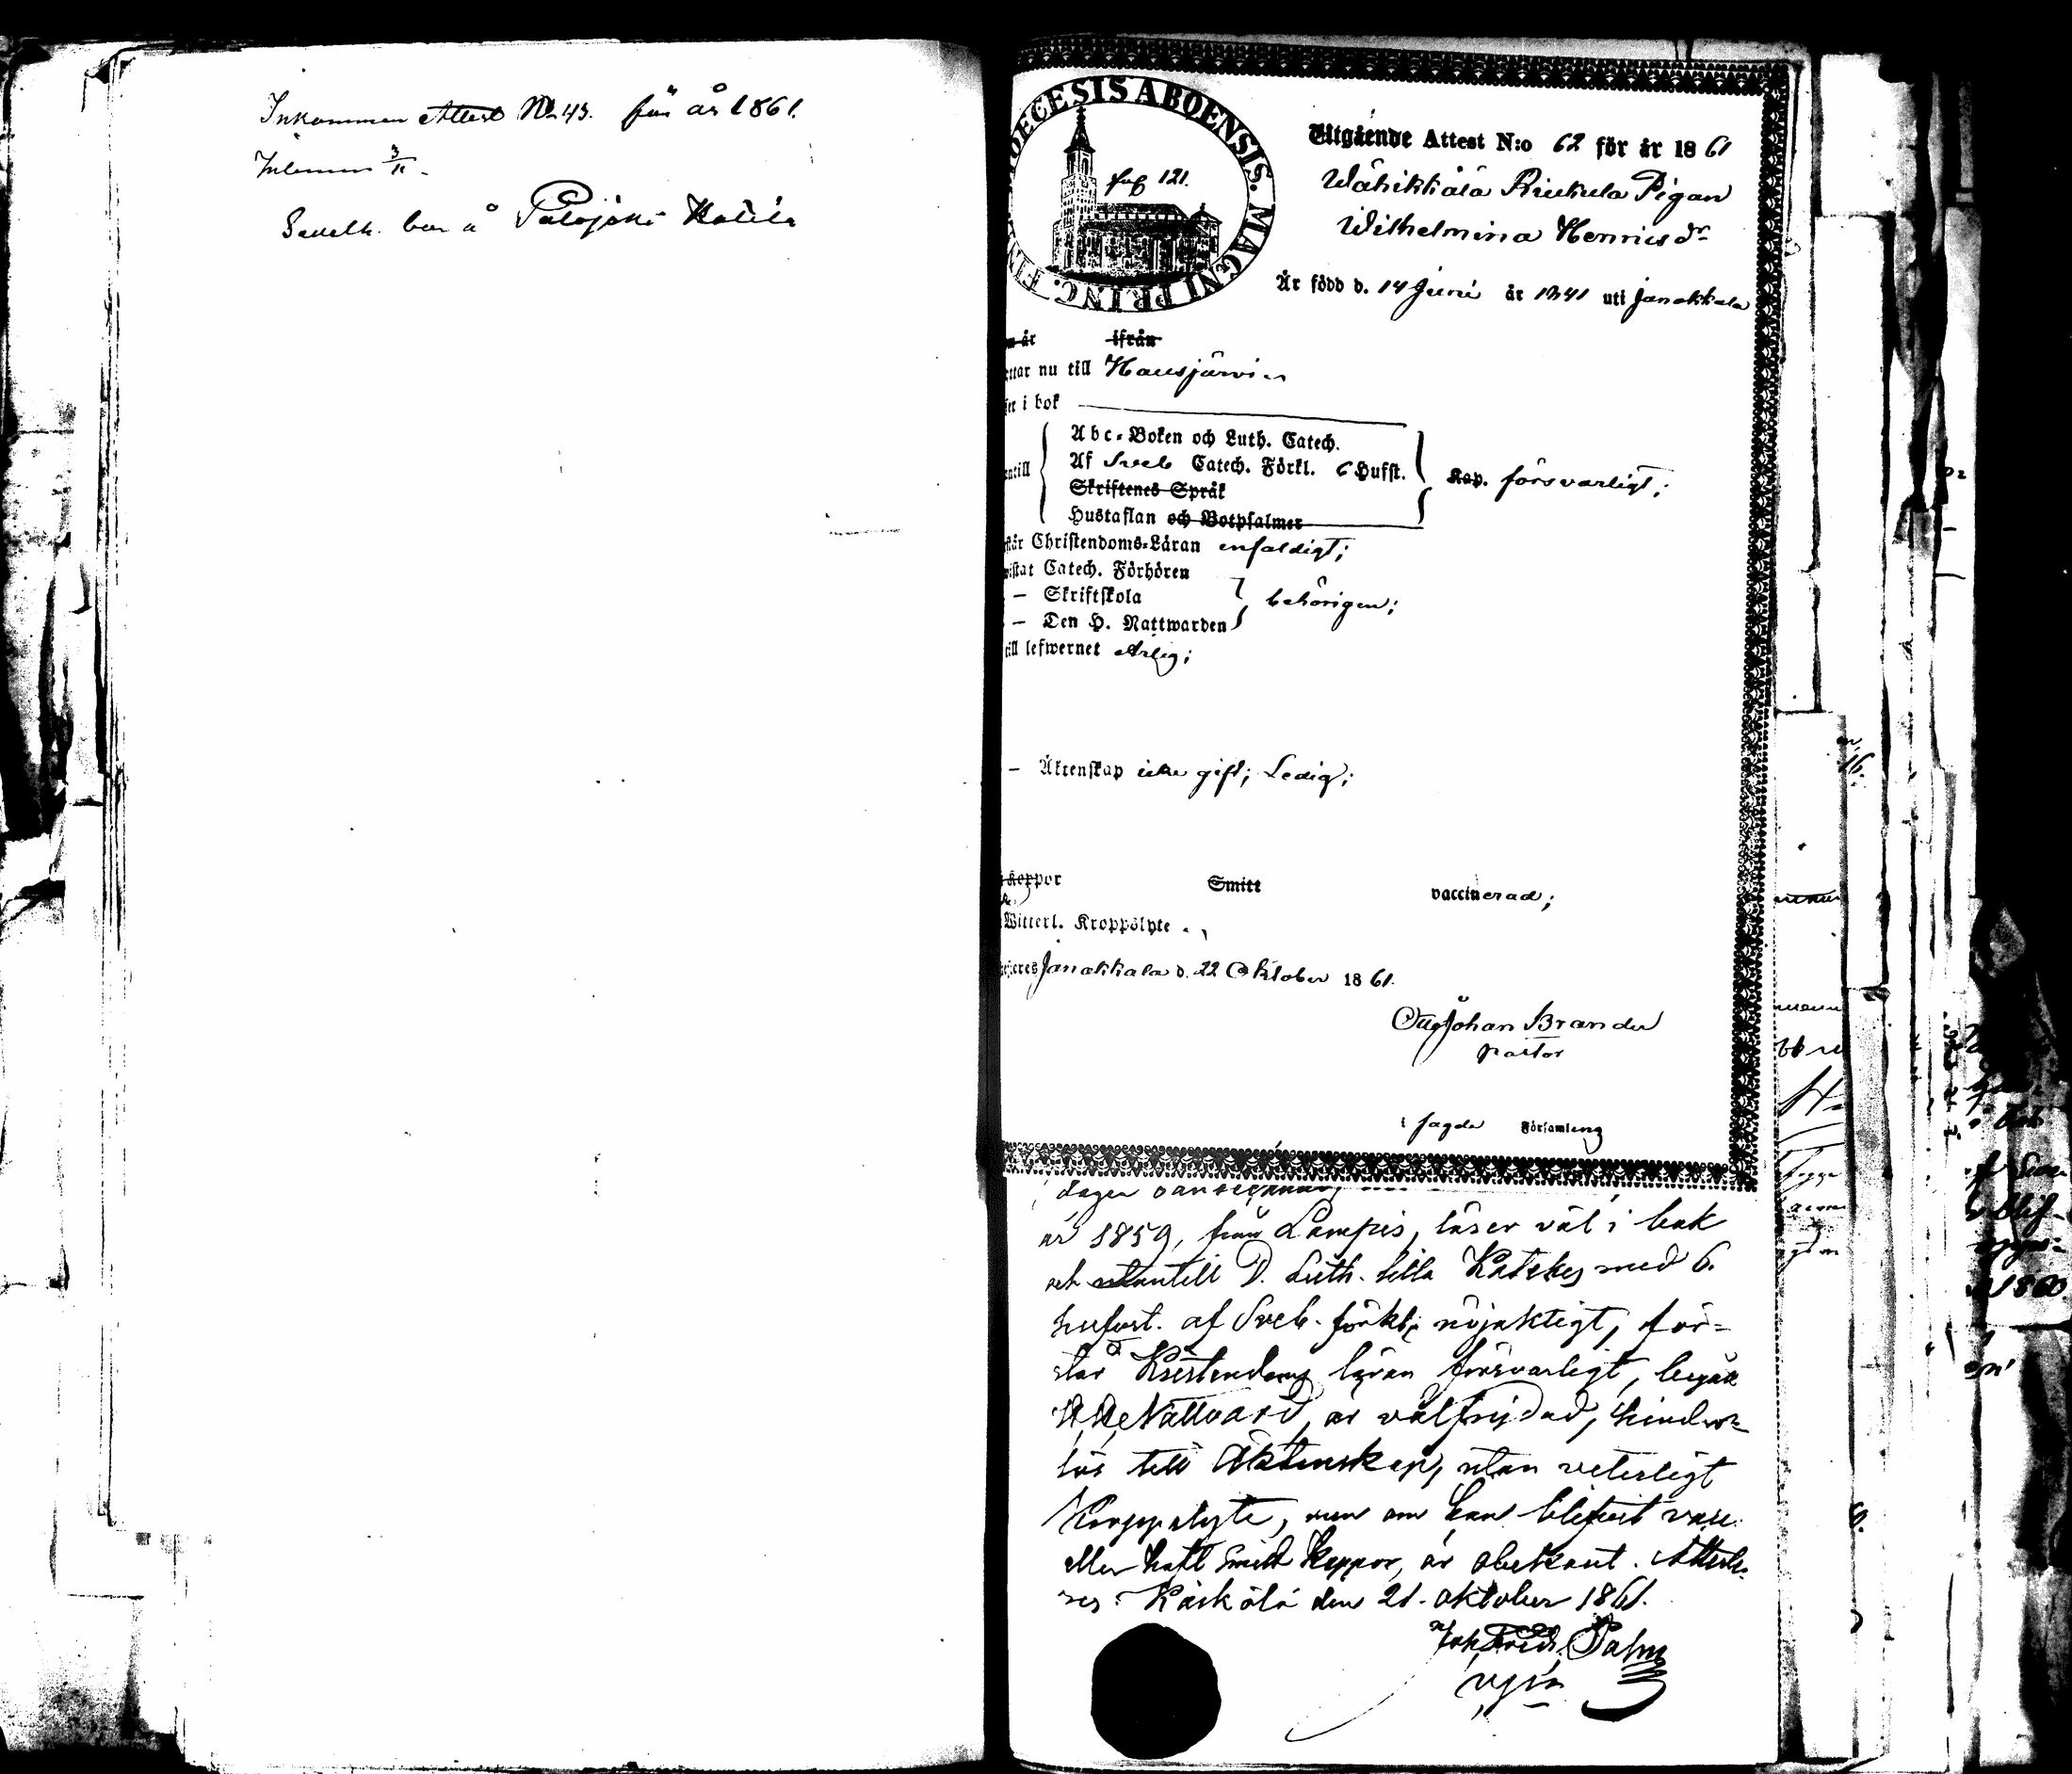 Inkommen Attest No 43. för år 1861.
3/11
å Palojoki
DIECESIS ABOENSIS. MAGNI PRINC. FIN
pag 121.
Utgående Attest N:o 62 för år 1861
Wähikkälä Pigan
Wilhelmina Henricsdr
Är född d. 14 Juni år 1841 uti Janakkala
år ifrån
ttar nu till Hausjärvi
i bok
Abc-Boken och Luth. Catech.
Af Sveb Catech. Förkl. 6 Hufst.
Kap. försvarligt;
antill
Skriftenes Språk
Hustaflan och Botpsalmer
står Christendoms-Läran enfaldigt;
wistat Catech. Förhören
— Skriftskola
behörigen;
— Den H. Nattwarden
till lefwernet Ärlig;
— Äktenskap icke gift; Ledig;
Koppor Smitt vaccinerad;
Witterl. Kroppslyte
Janakkala d. 22 Oktober 1861.
Otto Johan Brander
Pastor
i sagde Församling
år 1859, från Lampis, läser väl i bok
och utantill D. Luth. lilla Katekes med 6.
hufvst. af Sveb. förkl. nöjaktigt, för-
står Kristendoms läran försvarligt, begått
H. H. Nattvard, är välfrejdad, hinder-
lös till Äktenskap, utan veterligt
Kroppslyte, men om han blifvit vacc.
eller haft Smitt Koppor, är obekant. Atteste-
res. Kärkölä den 21. oktober 1861.
Joh. Fredr. Palm